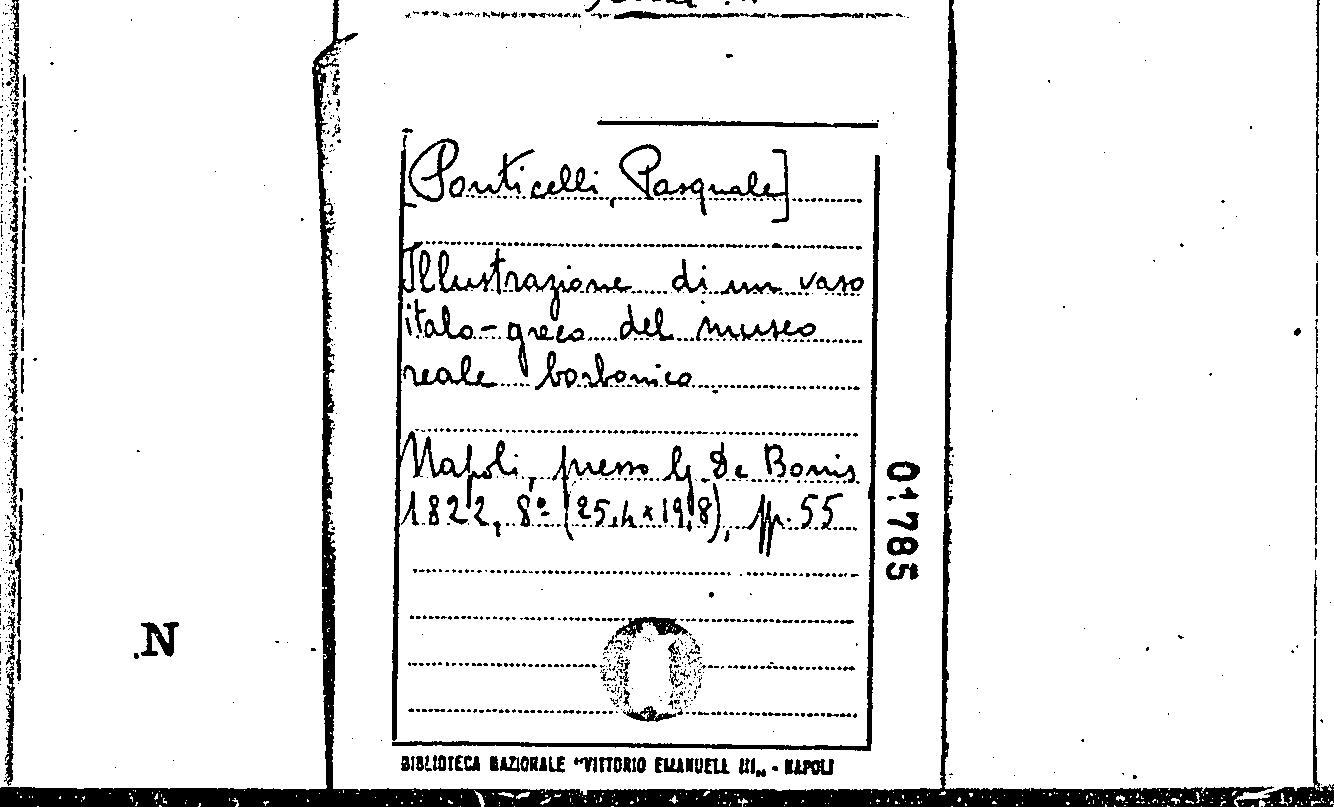 [Ponticelli, Pasquale]
Illustrazione di un vaso
italo-greco del museo
reale borbonico
Napoli, presso G. De Bonis
1822, 8º (25,4 x 19,8), pp. 55
01785
N
BIBLIOTECA NAZIONALE "VITTORIO EMANUELE III„ - NAPOLI